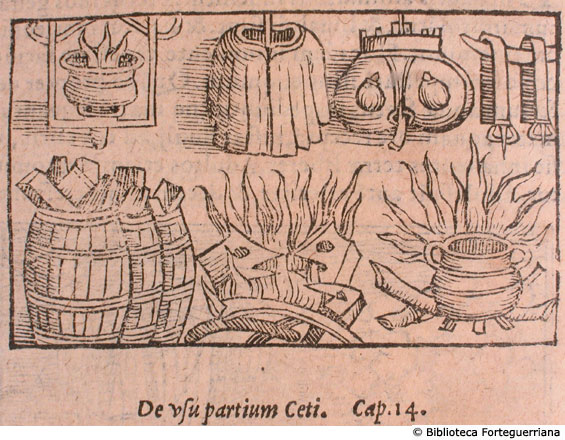 De vsu partium Ceti. Cap. 14.
© Biblioteca Forteguerriana